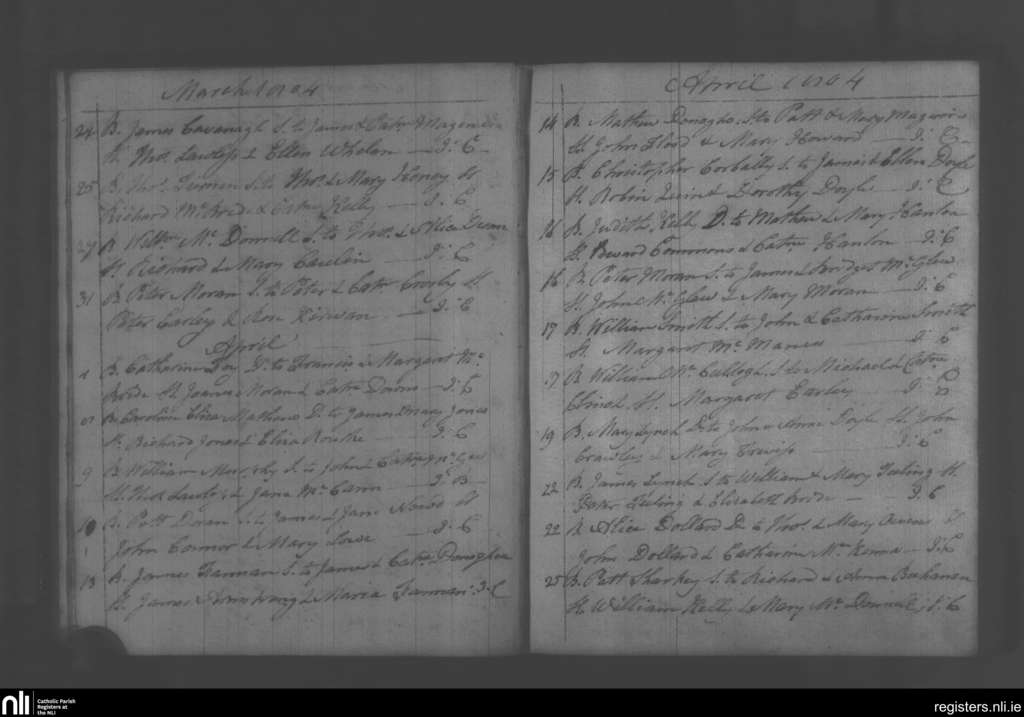 March 1804
24 B. James Cavanagh S. to James & Cath:
St. Thos. Lawless & Ellen Whelan J: C
25 B. Thos. S. to Thos. & Mary St
Richard McBride & Cath Kelly J: C
27 B. Willm Mc Donnell S. to Thos. & Alice
St. Richard & Mary J: C
31 B Peter Moran S. to Peter & Cath Crosby St
Peter Carley & Rose Kirwan J: C
April
1 B. Catharine D. to Francis & Margaret Mc
Bride St James Moran & Cath: Downs J: C
B. Caroline Eliza Mathews D. to James & Mary Jones
St. Richard Jones & Eliza Rourke J: C
9 B William Murphy S. to John & Cath:
St. Thos Lawless & Jane McCann J: B
10 B. Patt Doran S. to James & Jane St
John Connor & Mary Lowe J: C
13 B. James Fannan S. to James & Cath: Donoghoe
St. James Armstrong & Maria Fannan: J: C
April 1804
14 B. Mathew Donagho S. to Patt & Mary Maguire
St John Flood & Mary Howard J: C
15 B. Christopher Corbally S. to James & Ellen Doyle
St. Robin Quin & Dorothy Doyle J: C
16 B. Judith Kelly D. to Mathew & Mary Hanlon
St. Commons & Cathe Hanlon J: C
16 B. Peter Moran S. to James & Bridget McGlew
St. John McGlew & Mary Moran J: C
17 B. William Smith S. to John & Catharine Smith
St. Margaret McManus J: C
17 B. William S. to Michael & Cathe
St. Margaret Earley J: C
19 B. Mary Lynch D. to John & Anne Doyle St. John
Crawley & Mary J: C
22 B. James Lynch S. to William & Mary Teeling St
Peter Teeling & Elizabeth Bride J: C
22 B. Alice Dollard D. to Thos. & Mary Owens St
John Dollard & Catharine McKenna J: C
25 B. Patt Sharkey S. to Richard & Anna Buchanan
St. William Kelly & Mary McDonnell J: C
nli
Catholic Parish
Registers at
the NLI
registers.nli.ie